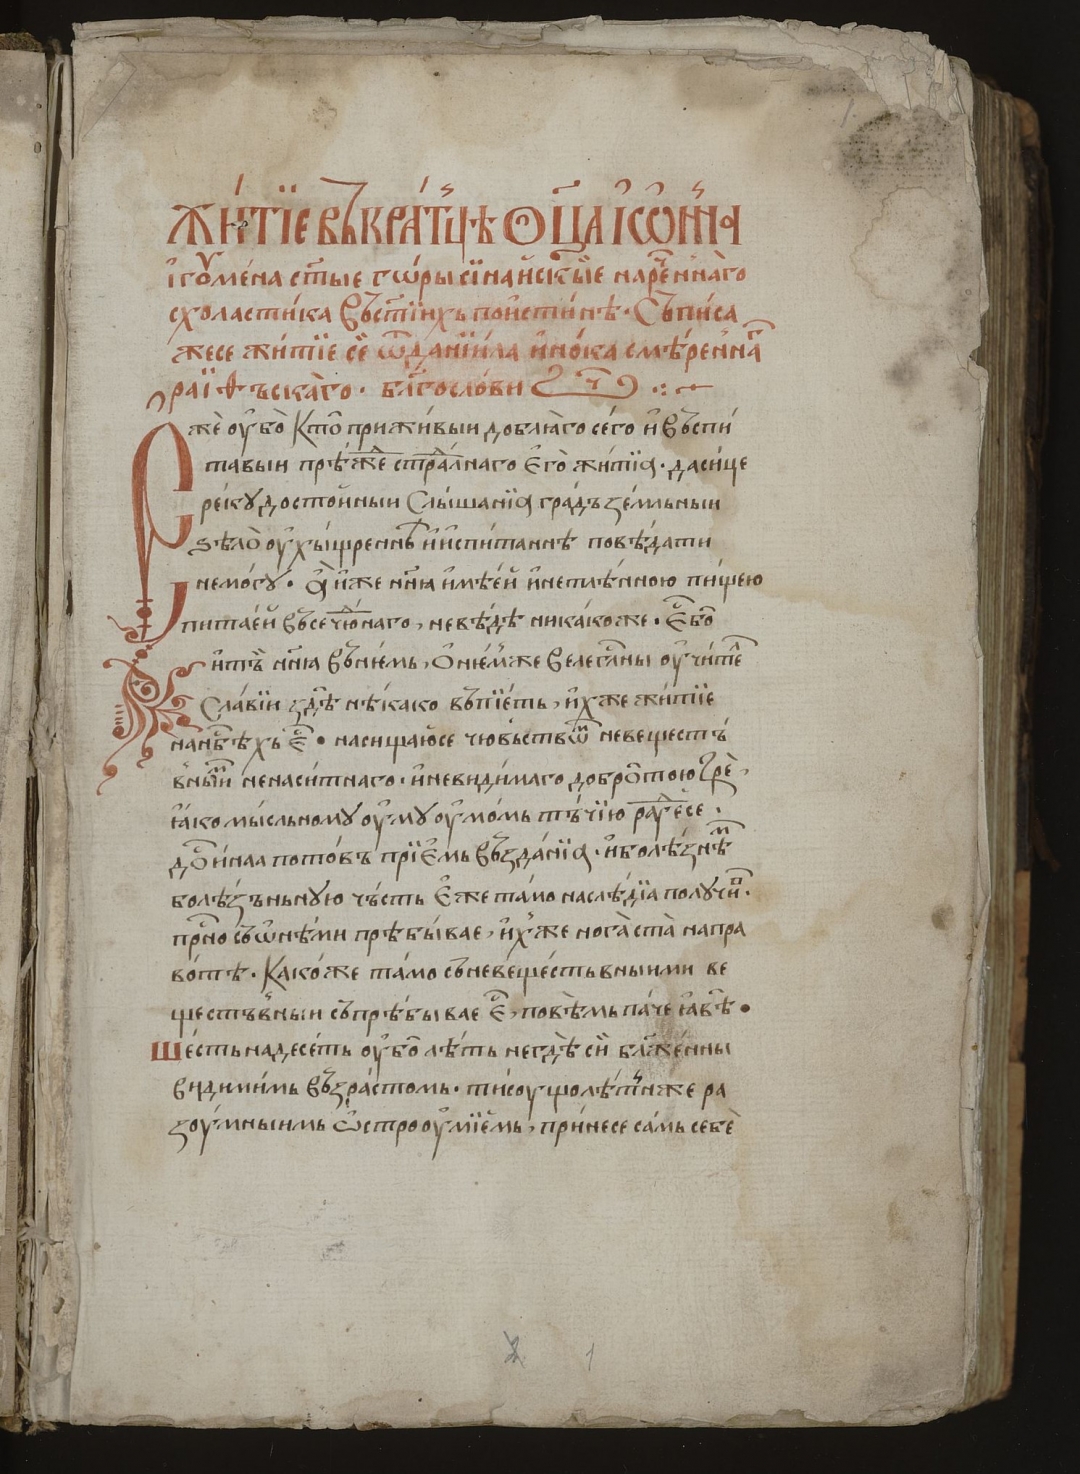 Жи́тїе въкра́тцѣ ѻц҃а їѡанна
їгꙋме́на ст҃ые гѡ́ры сїна́йскые нарѐченнаго
схола́стика въст҃їихь поистинѣ · Съписа
жесе жи́тїе сѐ ѿ данїила и҆но́ка смѣре́нна
раїѳьска́го · благослови ѿч҃е
Еже оу҆бо кто̀ прижи́выи доблꙗ́го се́го и҆ въспи
тавыи прѣ́же страда́лнаго є҆го̀ жи́тїа · да си́це
реку̀ досто́йныи слы́шанїа гра́дь зе́мльныи
ѕѣло̀ оу҆хы́щренѣ и҆ испи́таннѣ повѣ́дати
не могу̀ · А҆ и҆же нн҃ꙗ и҆мѣ́еи и҆ нетлѣ́нною пи́щею
пита́еи въсечю́днаго , не вѣ́дѣ ника́коже · Є҆бо
и҆ тъ̀ нн҃ꙗ въ ни́емь , ѻ҆ не́мже велегла́сны оу҆чи́тель
Сла́вїи здѐ нѣ́како въпїе́ть , и҆хже жи́тїе
на нб҃сѣхь є҆ • насища́юсе чю́вьствѡⷨ невещестъ́
вныⷨи ненаси́тнаго · и҆ неви́димаго добро́тою зре ,
ꙗ҆́ко мы́сльному оу҆му оу҆мо́мь тъ́чїю раду́есе ·
до҆сто́инаа пото́вь прїе҆мь въздаанїа · и҆ болѣ́знеⷨ
болѣ́зньную че́сть є҆же та́мо наслѣ́дїа получи ·
при́сно съ ѡ҆нѣ́ми прѣбы́вае , и҆́хже нога̀ ста̀ на пра
во́тѣ · Како́же та́мо съ невеще́стьвныими ве
ще́стьвныи съпрѣбы́вае є҆ , повѣ̀мь па́че ꙗ҆́вѣ •
Ше́стьнадесеть оу҆бо лѣ́ть негдѐ сїи блаже́нны
ви́димимь въ́зрастомь · ти́соущолѣ́тныже ра
зоу́мныимь ѡ҆строоу҆мїе́мь , при́несе са́мь себѐ
1